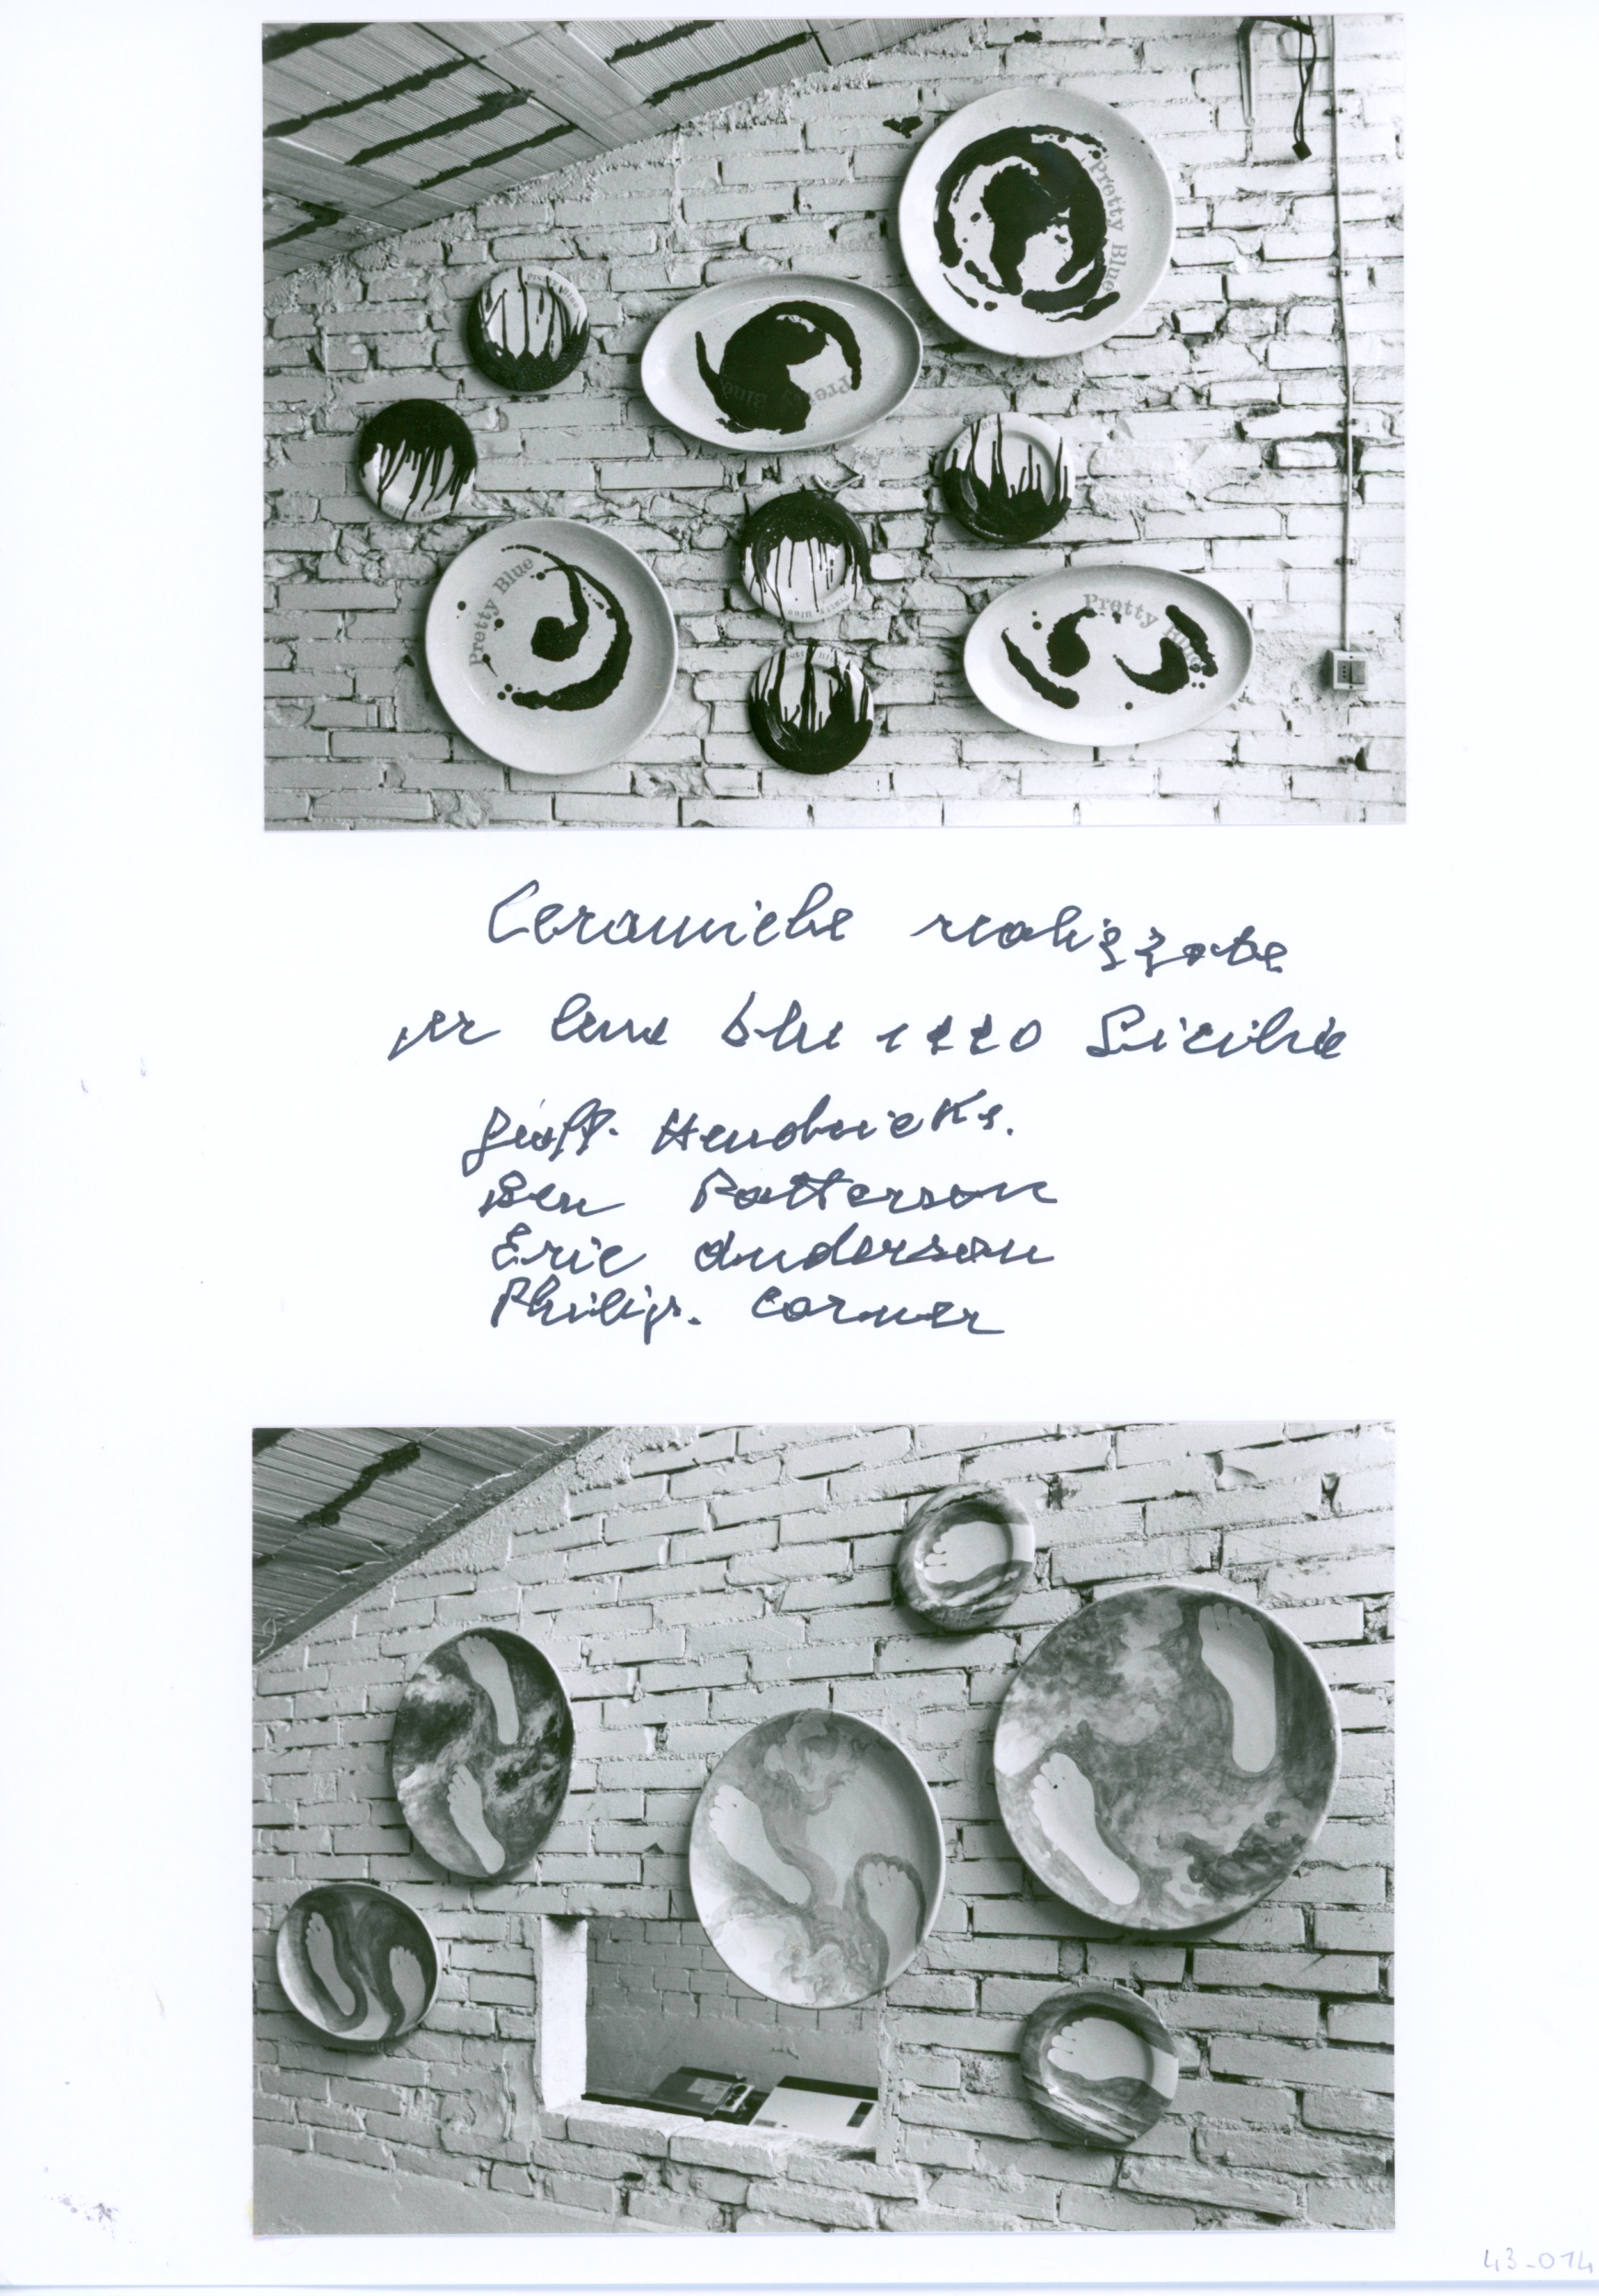 Pretty Blue
Pretty Blue
Pretty Blue
Pretty Blue
Pretty Blue
Ceramiche realizzate
per luna blu 1990 Sicilia
Geoff. Hendricks.
Ben Patterson
Eric Anderson
Philip. Corner
43-014